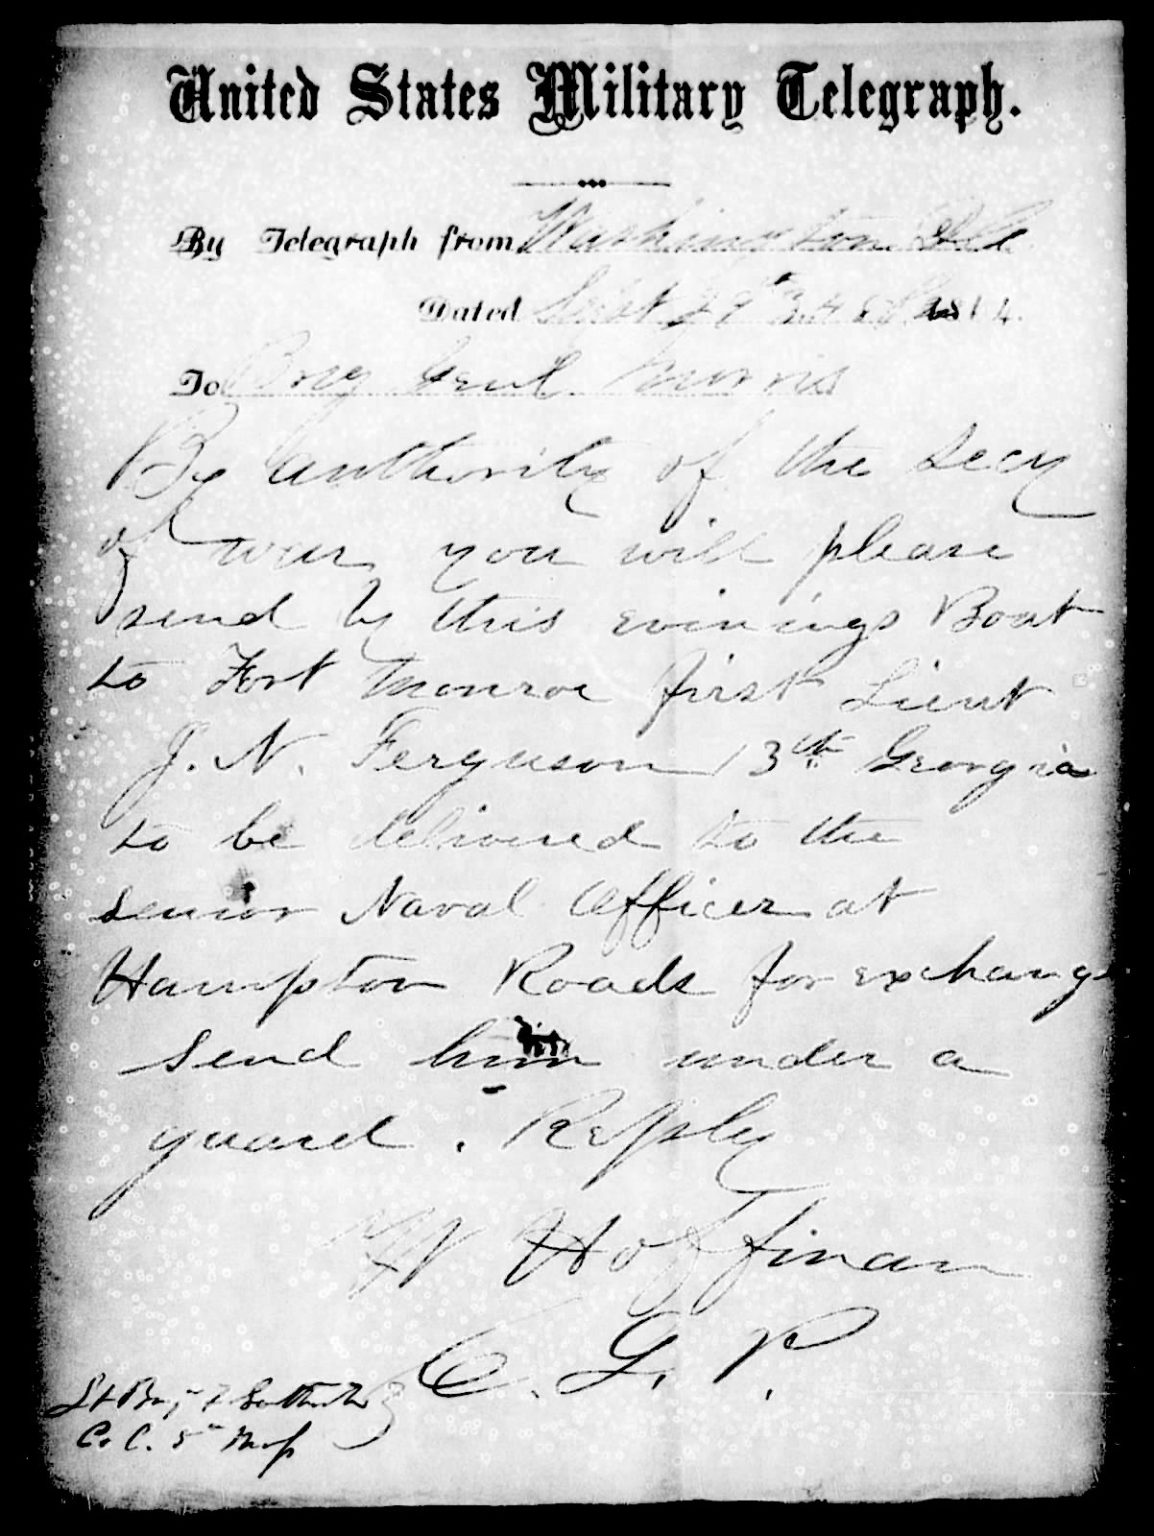 United States Military Telegraph.
By Telegraph from Washington DC
Dated Sept 27th 1864.
To Brig Genl Morris
By authority of the Secy
of war you will please
send by this evinings Boat
to Fort Monroe first Lieut
J. N. Ferguson 13th Georgia
to be delivered to the
senior Naval Officer at
Hampton Roads for exchange
send him under a
guard. Reply
W Hoffman
C. G. P.
Lt Benj F
Co C. 5th Mass